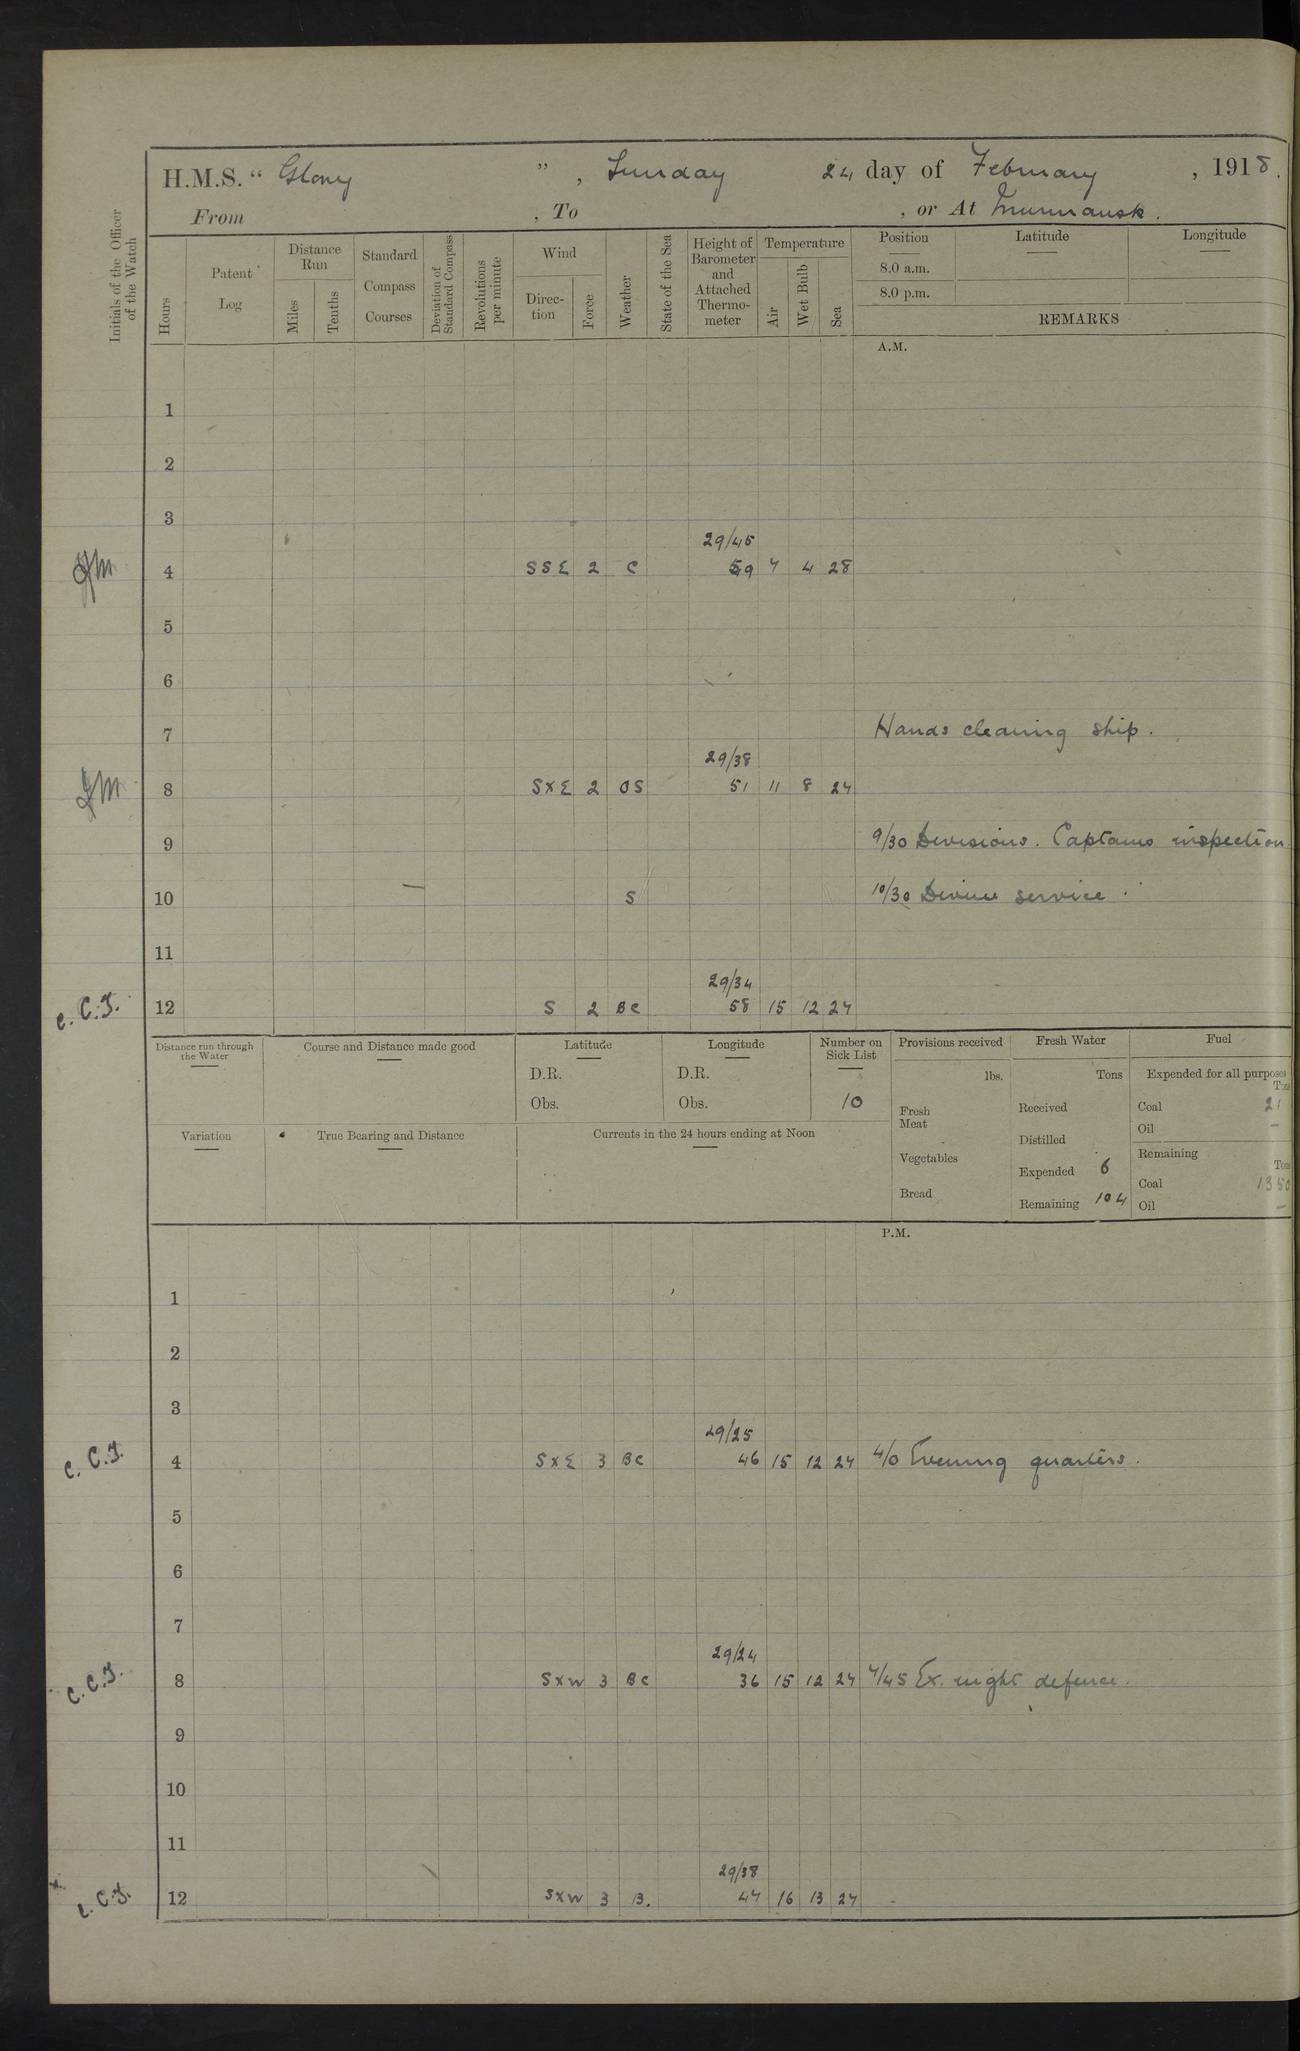 H.M.S. “ Glory ” , Sunday 24 day of February , 1918.
From , To , or At Murmansk.
Initials of the Officer of the Watch
Hours
Patent Log
Distance Run
Miles Tenths
Standard Compass Courses
Deviation of Standard Compass
Revolutions per minute
Wind
Direc-tion Force
Weather
State of the Sea
Height of Barometer and Attached Thermo-meter
Temperature
Air Wet Bulb Sea
Position Latitude Longitude
8.0 a.m.
8.0 p.m.
REMARKS
A.M.
1
2
3
29/45
4 SSE 2 C 7 4 28
5
6
7 Hands cleaning ship.
29/38
8 SXE 2 OS 51 11 8 27
9 9/30 Divisions. Captains inspection
10 S 10/30 Divine service.
11
29/34
C.C.J. 12 S 2 BC 58 15 12 27
Distance run through the Water
Course and Distance made good
Latitude
D.R.
Obs.
Longitude
D.R.
Obs.
Number on Sick List
10
Provisions received
lbs.
Fresh Meat
Vegetables
Bread
Fresh Water
Tons
Received
Distilled
Expended 6
Remaining 104
Fuel
Expended for all purposes
Tons
Coal 21
Oil –
Remaining
Tons
Coal 1350
Oil –
Variation
True Bearing and Distance
Currents in the 24 hours ending at Noon
P.M.
1
2
3
29/25
C.C.J. 4 SXE 3 BC 46 15 12 27 4/0 Evening quarters.
5
6
7
29/24
C.C.J. 8 SXW 3 BC 36 15 12 27 7/45 Ex. night defence.
9
10
11
29/38
C.C.J. 12 SXW 3 B. 47 16 13 27